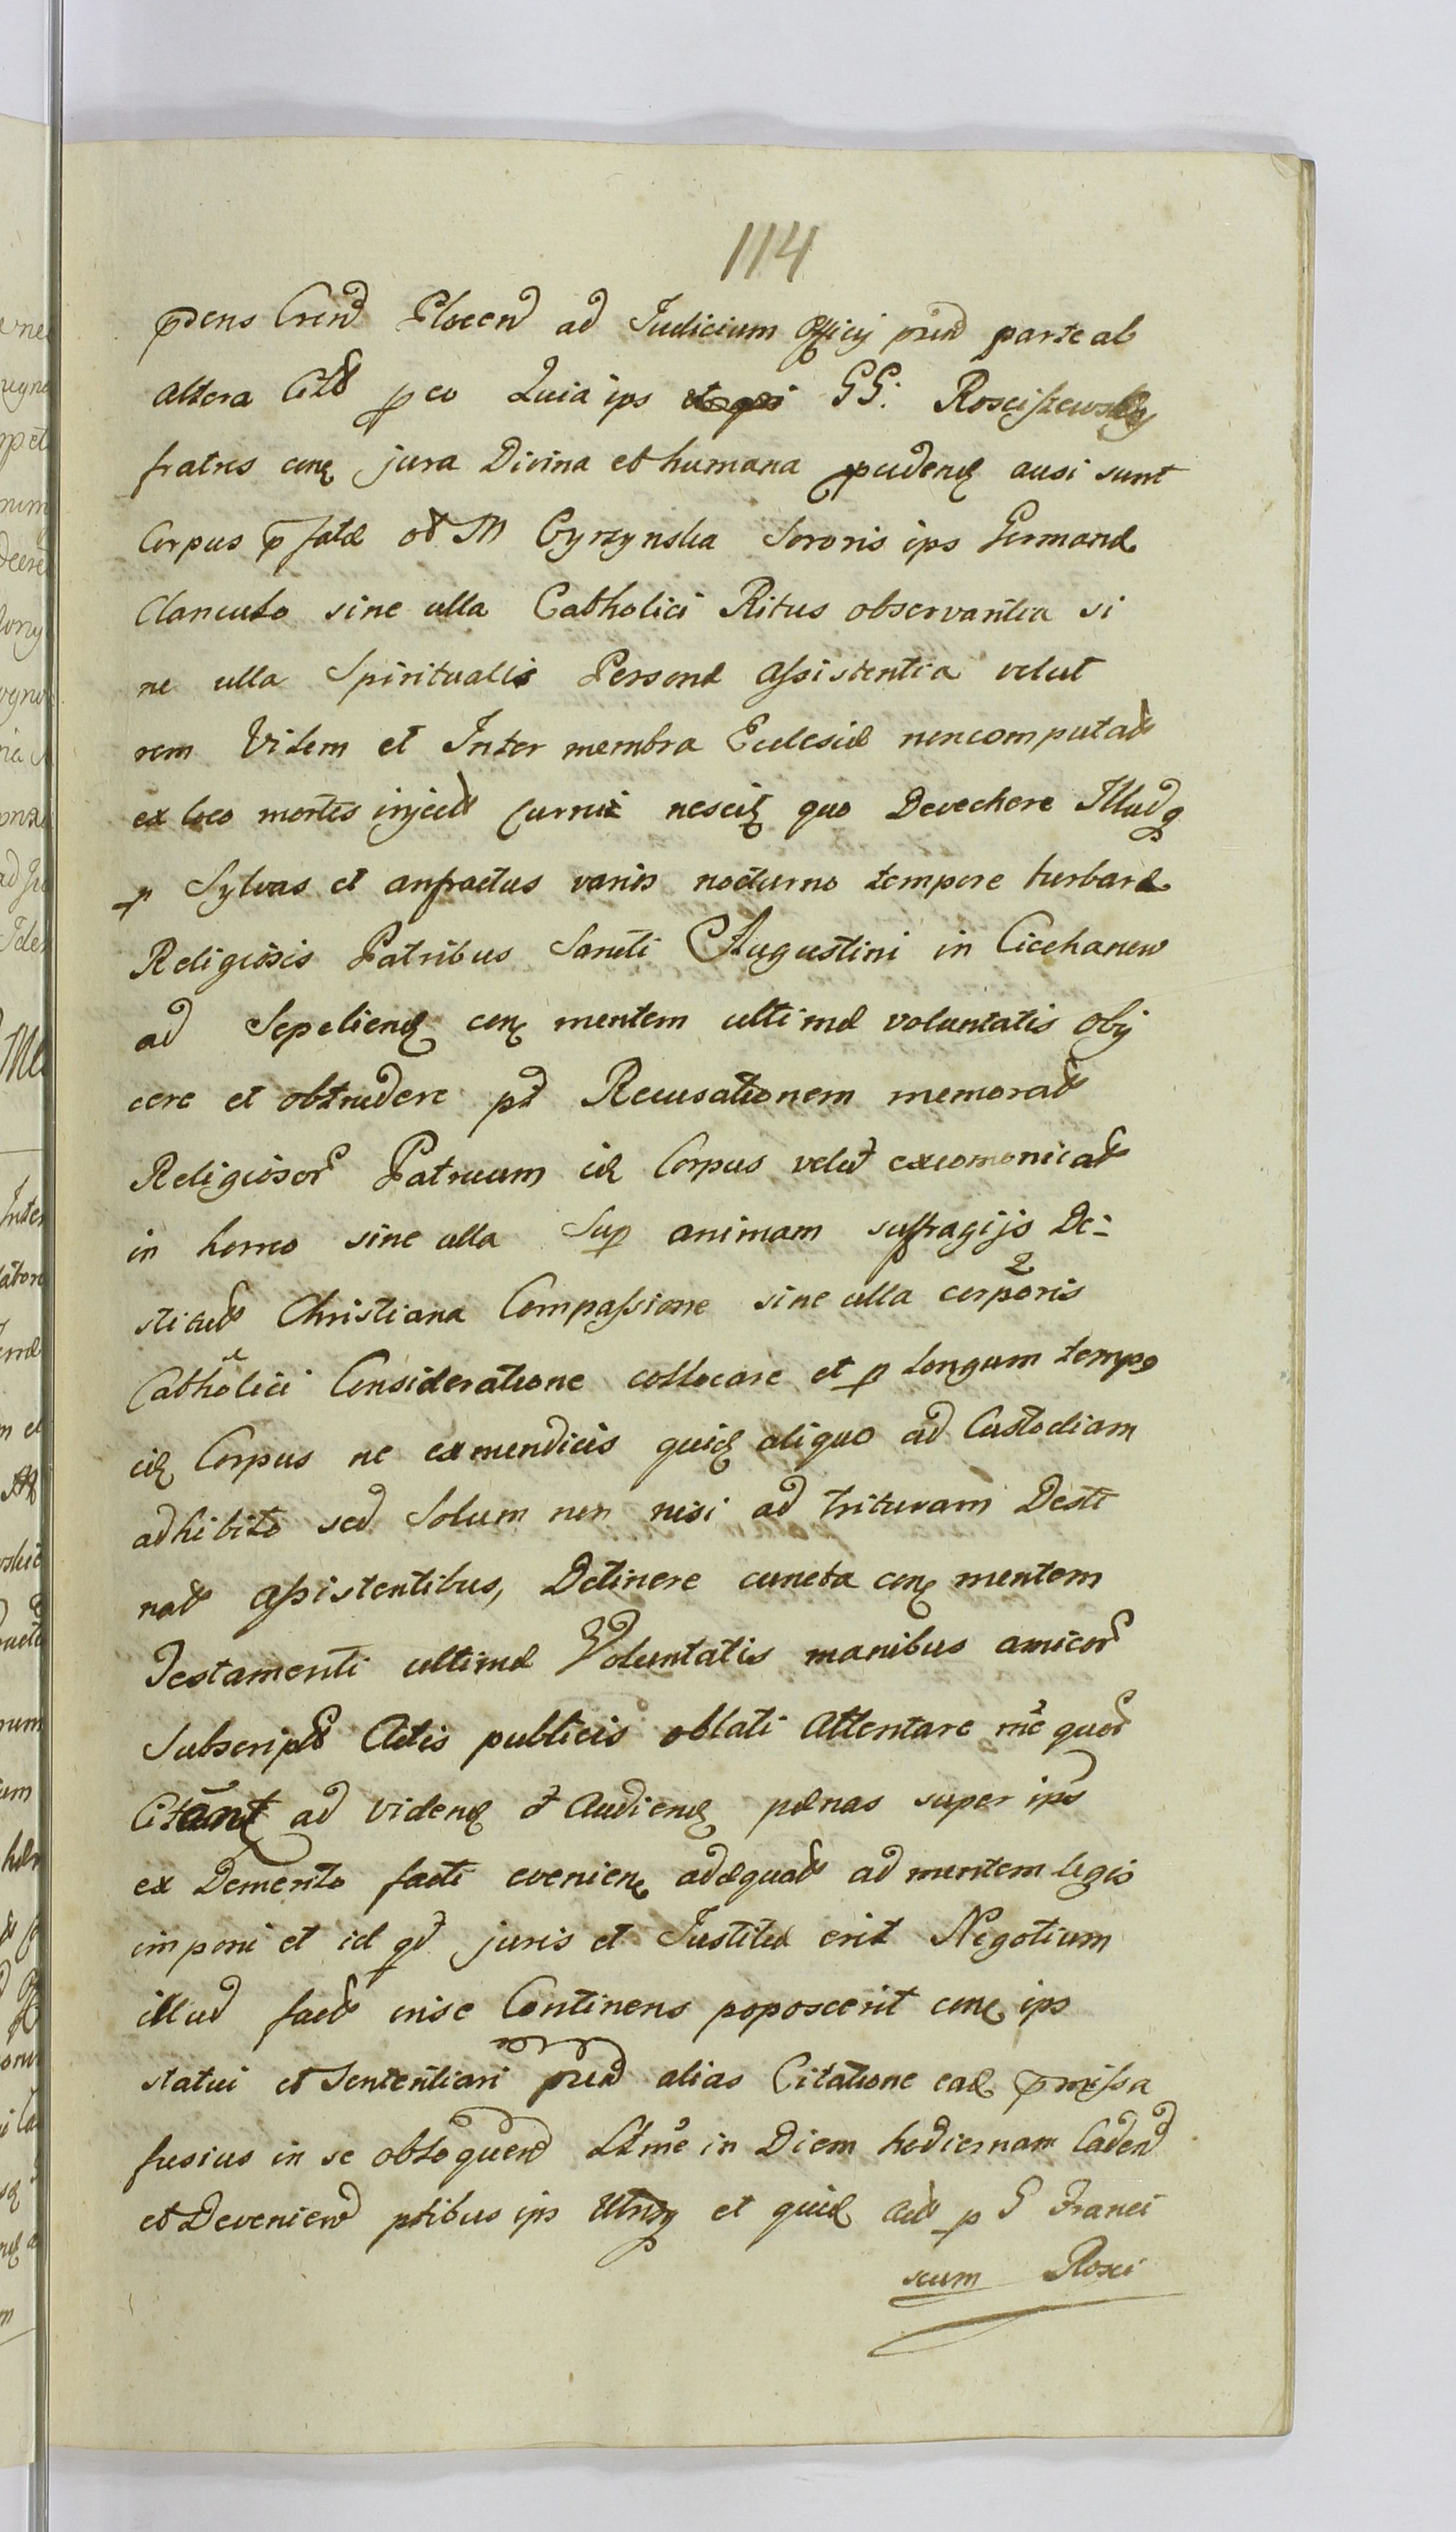 114
pdens Crend Plocend ad Judicium Officij prnd parte ab
altera Citt peo Quia ips GG: Rosciszewscy
fratres conq jura Divina et humana pudenq ausi sunt
Corpus pfatæ ot M Gyrzynska Sororis ips Germanæ
Clanculo sine ulla Catholici Ritus observantia si
ne ulla Spiritualis Personæ assistentia velut
rem Vilem et Inter membra Eclesiæ non computat
ex loco mortis inject currui nescitq quo Devechere Illudq
p Sylvas et anfractus varios nocturno tempore turbare
Religiosis Patribus Sancti Augustini in Ciechanow
ad Sepeliendq conq mentem ultimæ voluntatis obij
cere et obtrudere pt Recusationem memorat
Religiosor Patruum idq Corpus velut excomonicat
in horreo sine ulla Sup animam suffragijs De-
stitut Christiana Compassione sine ulla corporis
Catholici Consideratione collocare et p longum tempo
idq Corpus ne ex mendicis quidq aliquo ad Custodiam
adhibito sed Solum non nisi ad trituram Desti
nat assistentibus, Detinere cuncta conq mentem
Testamenti ultimæ Voluntatis manibus amicor
Subscript Actis publicis oblati Attentare rne quor
Citant ad videndq et Audiendq pænas super ips
ex Demerito facti evenienq adæquat ad mentem legis
imponi et id qd juris et Justitiæ erit Negotium
illud fact inse Continens poposcerit conq ips
statui et Sententiari prnd alias Citatione eadq pmissa
fusius in se obloquend Ltme in Diem hodiernam Cadend
et Deveniend ptibus ips Utrisq et quidq Act p G Franci
scum Rosci